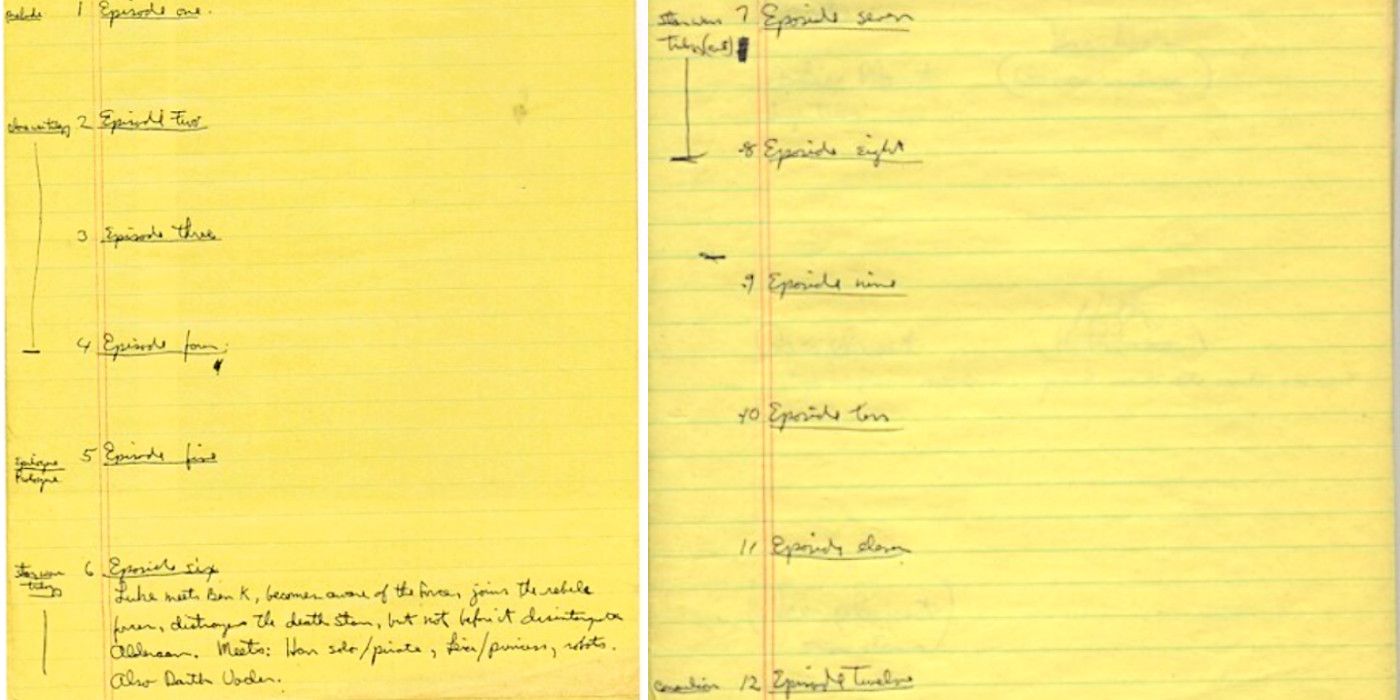 Prelude 1 Episode one.
clone war trilogy 2 Episode Two
3 Episode three
4 Episode four
5 Episode five
Epilogue
Prologue
6 Eposide six
star wars
trilogy
Luke meets Ben K, becomes aware of the force, joins the rebels
force, distroyes the death star, but not before it disintergrates
Alderaan. Meets: Han solo/pirate, Leia/princess, robots.
Also Darth Vader.
star wars 7 Eposide seven
trilogy (cont)
8 Eposide eight
9 Eposide nine
10 Eposide ten
11 Eposide eleven
conclusion 12 Episode Twelve